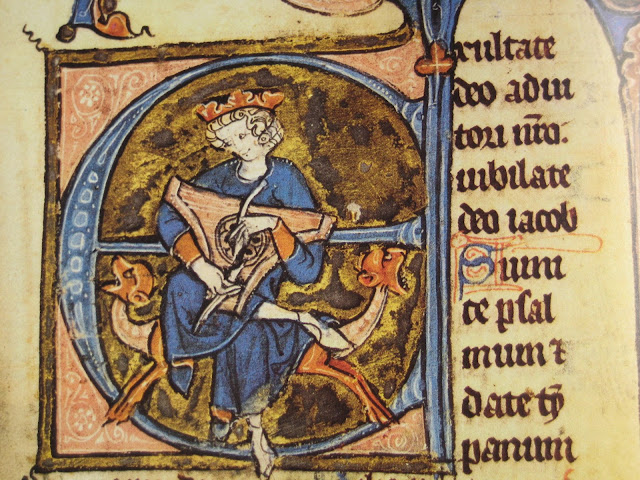 Exultate
deo adiu
tori nr̄o.
iubilate
deo iacob
Sumi
te psal
mum ⁊
date tȳ
panum